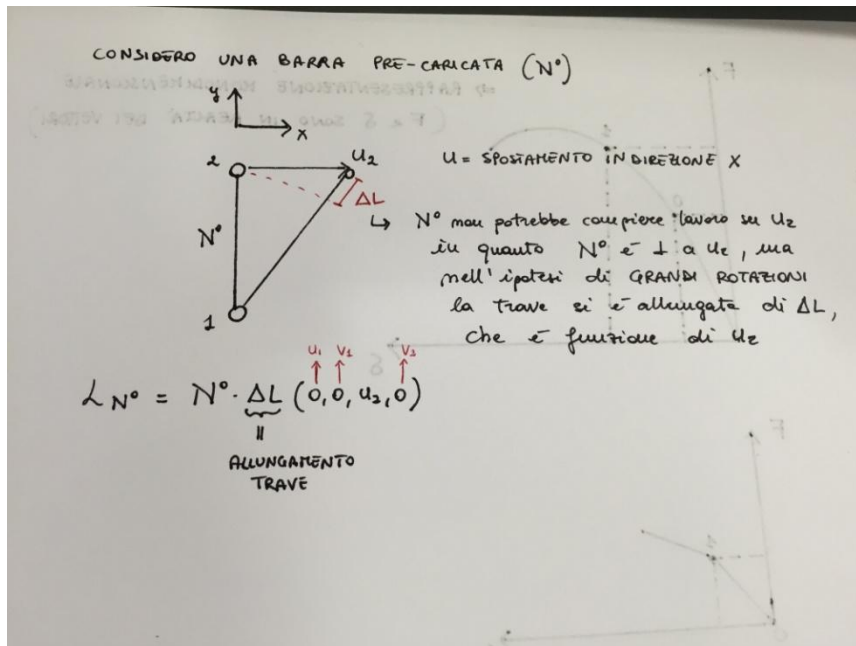 CONSIDERO UNA BARRA PRE-CARICATA (N°)
y
x
2
U2
ΔL
N°
1
U = SPOSTAMENTO IN DIREZIONE X
↳ N° non potrebbe compiere lavoro su U2
in quanto N° è ⊥ a U2, ma
nell'ipotesi di GRANDI ROTAZIONI
la trave si è allungata di ΔL,
che è funzione di U2
U1 V1 V2
L N° = N° · ΔL (0, 0, U2, 0)
ALLUNGAMENTO
TRAVE